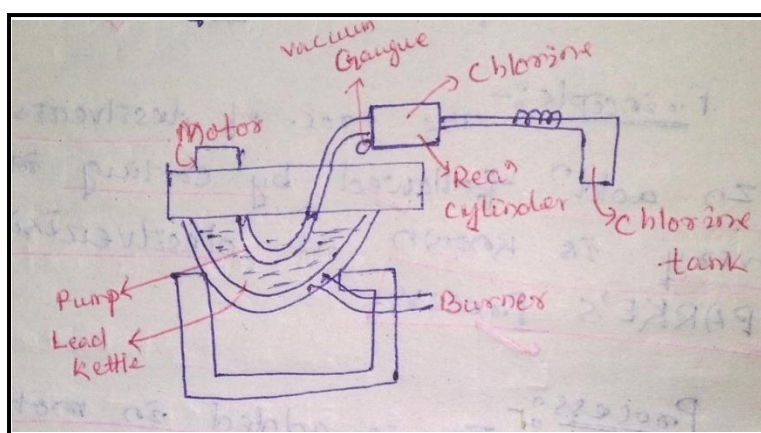 Vacuum
Gaugue
Chlorine
Motor
Reaⁿ
cylinder
Chlorine
tank
Pump
Lead
kettle
Burner